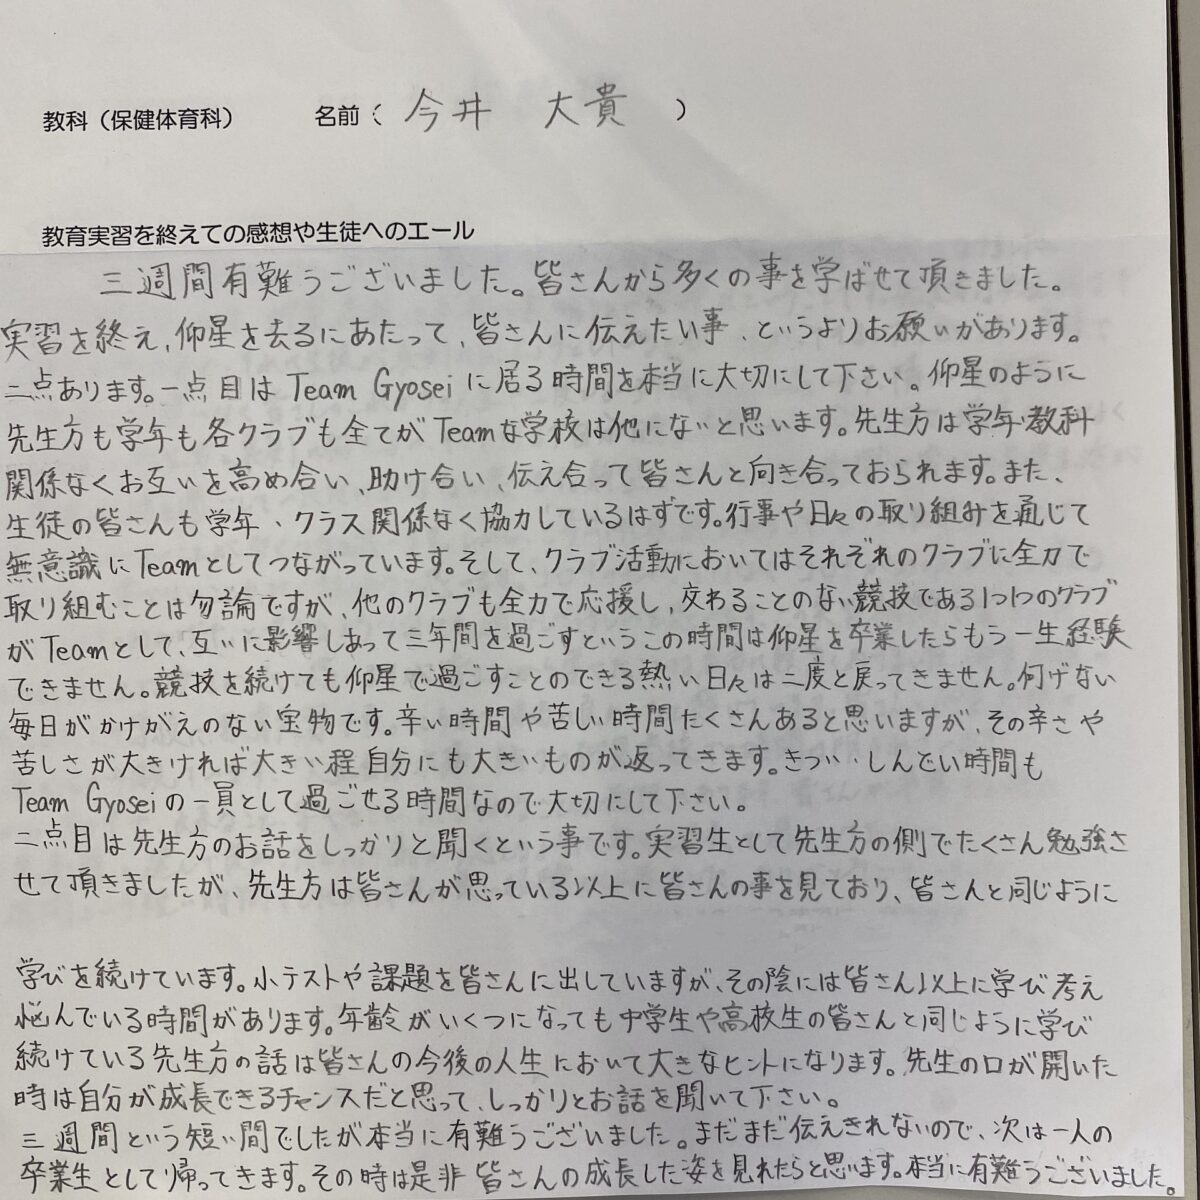 教科（保健体育科） 名前（ 今井 大貴 ）
教育実習を終えての感想や生徒へのエール
三週間有難うございました。皆さんから多くの事を学ばせて頂きました。
実習を終え、仰星を去るにあたって、皆さんに伝えたい事、というよりお願いがあります。
二点あります。一点目は Team Gyosei に居る時間を本当に大切にして下さい。仰星のように
先生方も学年も各クラブも全てがTeamな学校は他にないと思います。先生方は学年・教科
関係なくお互いを高め合い、助け合い、伝え合って皆さんと向き合っておられます。また、
生徒の皆さんも学年、クラス関係なく協力しているはずです。行事や日々の取り組みを通じて
無意識にTeamとしてつながっています。そして、クラブ活動においてはそれぞれのクラブに全力で
取り組むことは勿論ですが、他のクラブも全力で応援し、交わることのない競技である1つ1つのクラブ
がTeamとして、互いに影響しあって三年間を過ごすというこの時間は仰星を卒業したらもう一生経験
できません。競技を続けても仰星で過ごすことのできる熱い日々は二度と戻ってきません。何げない
毎日がかけがえのない宝物です。辛い時間や苦しい時間たくさんあると思いますが、その辛さや
苦しさが大きければ大きい程自分にも大きいものが返ってきます。きつい・しんどい時間も
Team Gyoseiの一員として過ごせる時間なので大切にして下さい。
二点目は先生方のお話をしっかりと聞くという事です。実習生として先生方の側でたくさん勉強さ
せて頂きましたが、先生方は皆さんが思っている以上に皆さんの事を見ており、皆さんと同じように
学びを続けています。小テストや課題を皆さんに出していますが、その陰には皆さん以上に学び考え
悩んでいる時間があります。年齢がいくつになっても中学生や高校生の皆さんと同じように学び
続けている先生方の話は皆さんの今後の人生において大きなヒントになります。先生の口が開いた
時は自分が成長できるチャンスだと思って、しっかりとお話を聞いて下さい。
三週間という短い間でしたが本当に有難うございました。まだまだ伝えきれないので、次は一人の
卒業生として帰ってきます。その時は是非皆さんの成長した姿を見れたらと思います。本当に有難うございました。